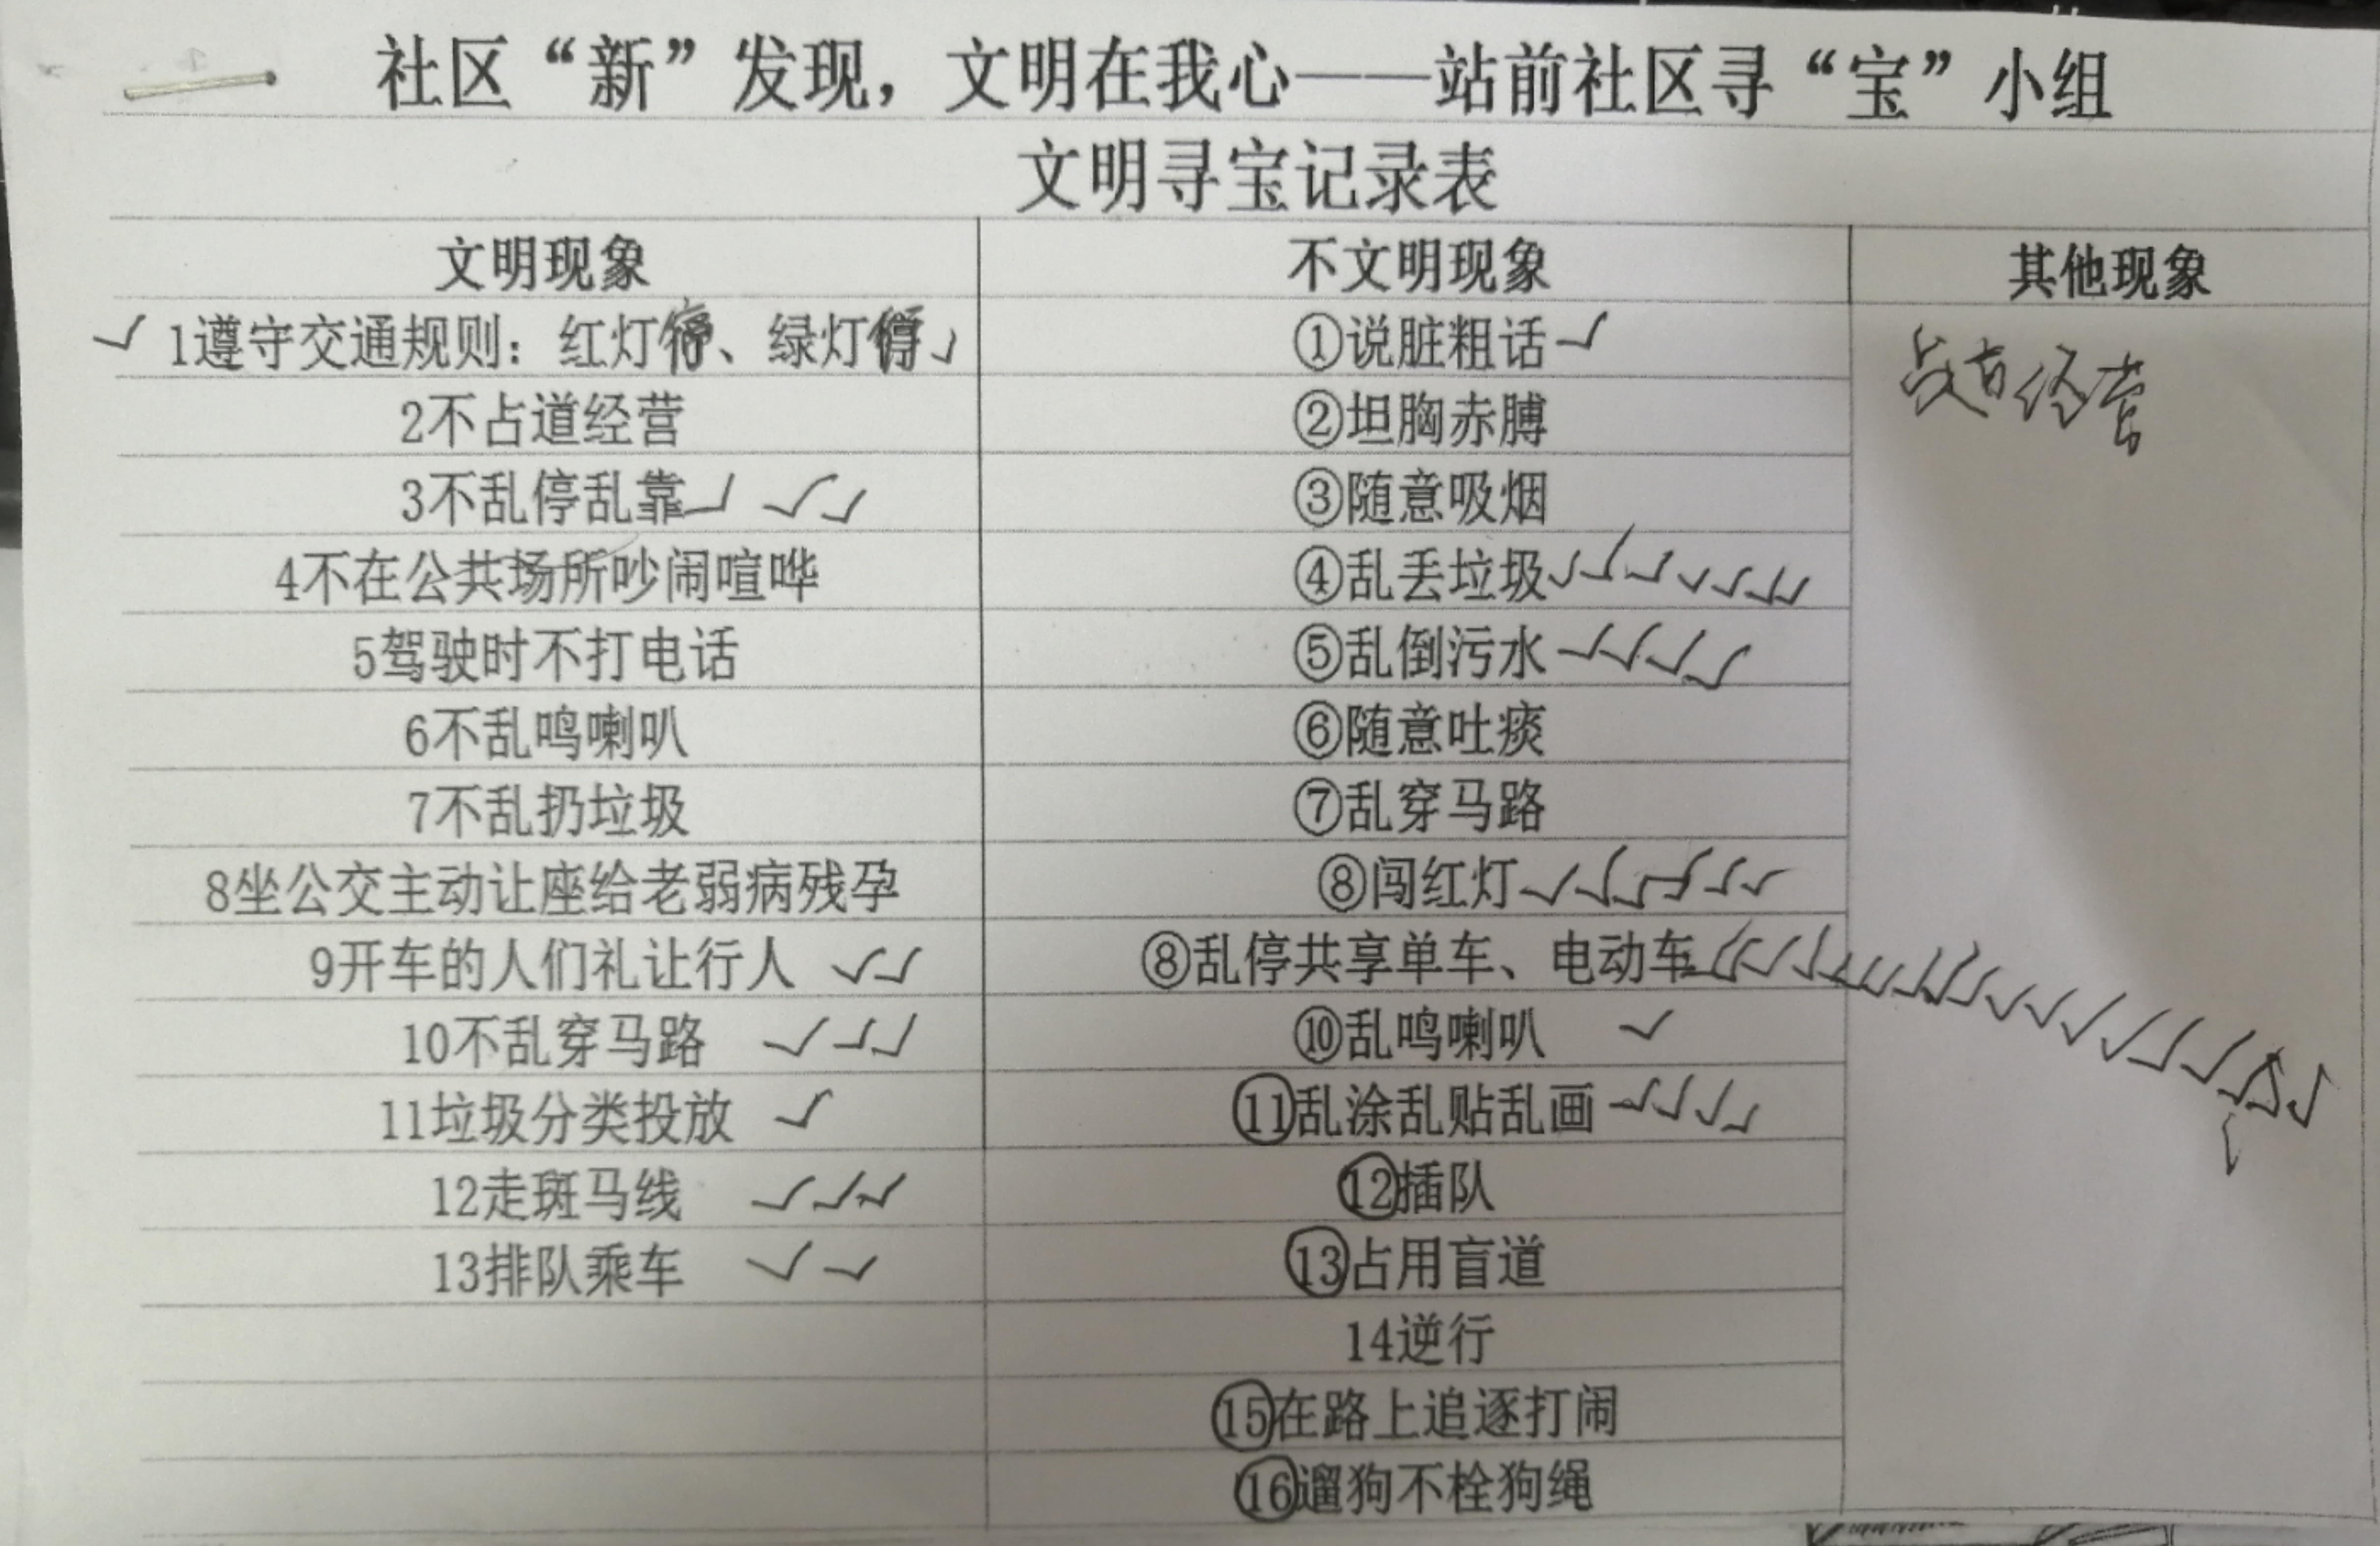 社区“新”发现，文明在我心——站前社区寻“宝”小组
文明寻宝记录表
文明现象 不文明现象 其他现象
✓ 1遵守交通规则：红灯、绿灯 ✓ ①说脏粗话 ✓
经营
2不占道经营 ②坦胸赤膊
3不乱停乱靠 ✓ ✓ ✓ ③随意吸烟
4不在公共场所吵闹喧哗 ④乱丢垃圾 ✓✓✓✓✓✓✓
5驾驶时不打电话 ⑤乱倒污水 ✓✓✓✓
6不乱鸣喇叭 ⑥随意吐痰
7不乱扔垃圾 ⑦乱穿马路
8坐公交主动让座给老弱病残孕 ⑧闯红灯 ✓✓✓✓✓✓
9开车的人们礼让行人 ✓✓ ⑧乱停共享单车、电动车
10不乱穿马路 ✓✓✓ ⑩乱鸣喇叭 ✓
11垃圾分类投放 ✓ ⑪乱涂乱贴乱画 ✓✓✓✓
12走斑马线 ✓✓✓ ⑫插队
13排队乘车 ✓✓ ⑬占用盲道
14逆行
⑮在路上追逐打闹
⑯遛狗不栓狗绳